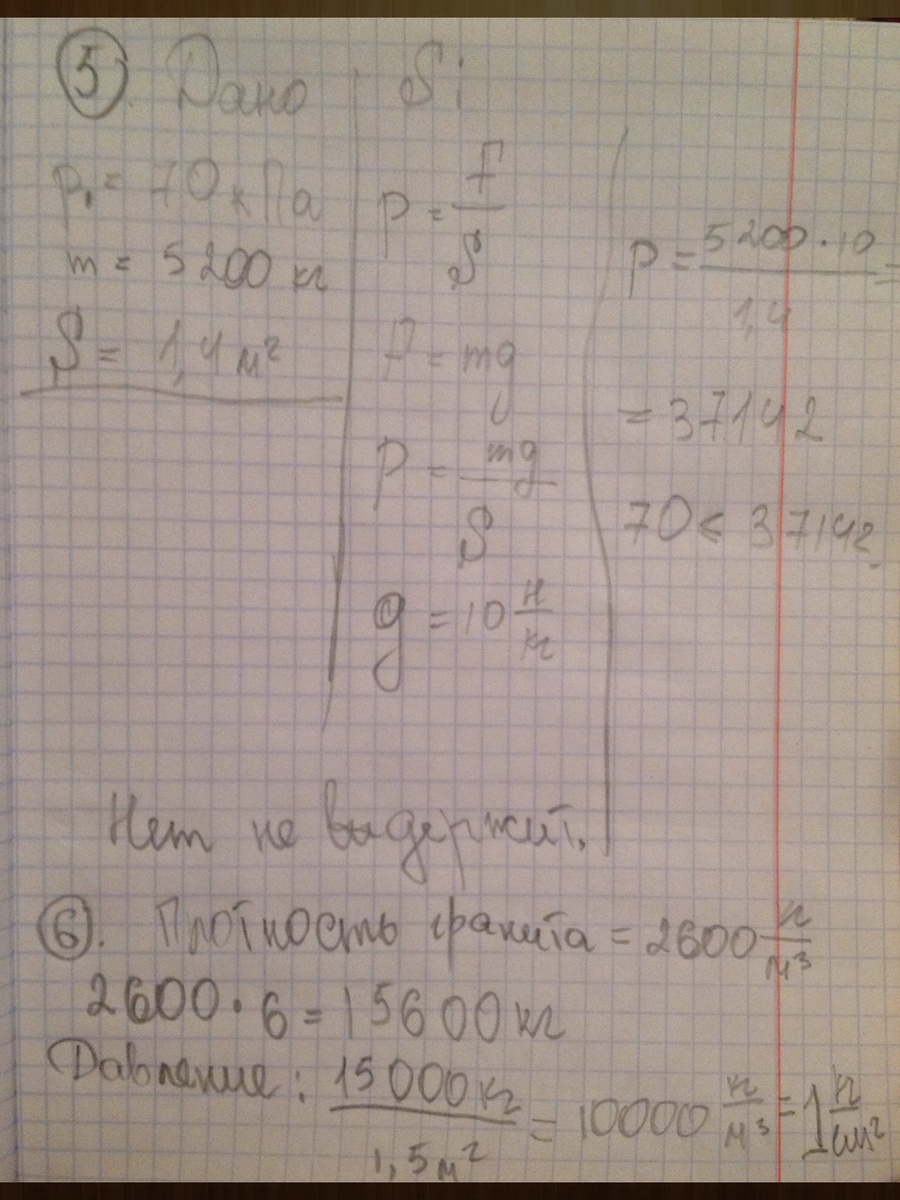 5. Дано
p₁ = 70 кПа
m = 5200 кг
S = 1,4 м²
Si
p = F/S
F = mg
p = mg/S
g = 10 н/кг
p = 5200·10/1,4 =
= 37142
70 < 37142
Нет не выдержит.
6. Плотность гранита = 2600 кг/м³
2600·6 = 15600 кг
Давление: 15000 кг/1,5 м² = 10000 кг/м³ = 1 кг/см²